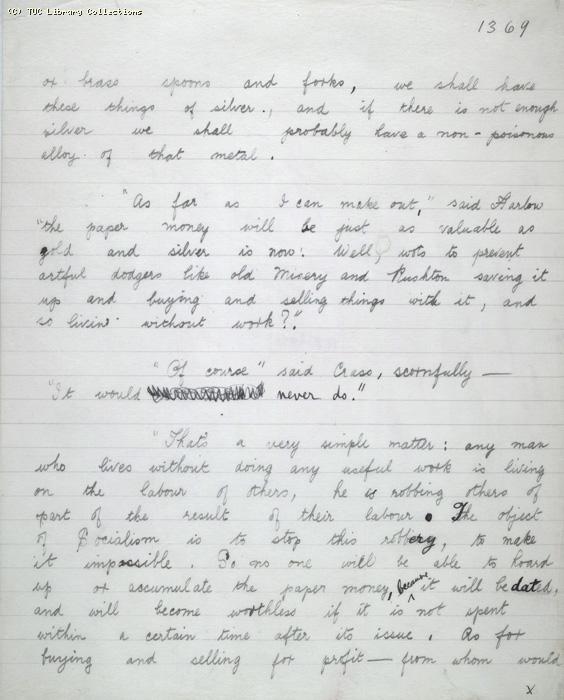 (C) TUC Library Collections
1369
or brass spoons and forks, we shall have
these things of silver., and if there is not enough
silver we shall probably have a non-poisonous
alloy of that metal.
"As far as I can make out," said Harlow
"the paper money will be just as valuable as
gold and silver is now. Well, wots to prevent
artful dodgers like old Misery and Rushton saving it
up and buying and selling things with it, and
so livin' without work?".
"Of course" said Crass, scornfully —
"It would never do."
"That's a very simple matter: any man
who lives without doing any useful work is living
on the labour of others, he is robbing others of
part of the result of their labour. The object
of Socialism is to stop this robbery, to make
it impossible. So no one will be able to hoard
up or accumulate the paper money, because it will be dated,
and will become worthless if it is not spent
within a certain time after its issue. As for
buying and selling for profit — from whom would
x